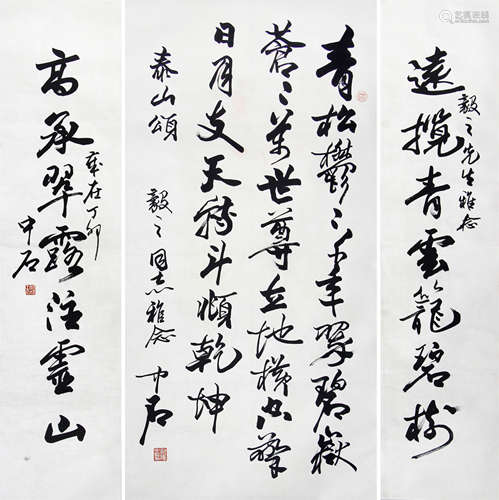 毅之先生雅念
遠攬青雲籠碧樹
青松鬱〻千年翠碧嶽
蒼〻萬世尊立地橫空擎
日月支天轉斗順乾坤
泰山頌 毅之同志雅念 中石
歲在丁卯
高承翠露注靈山
中石